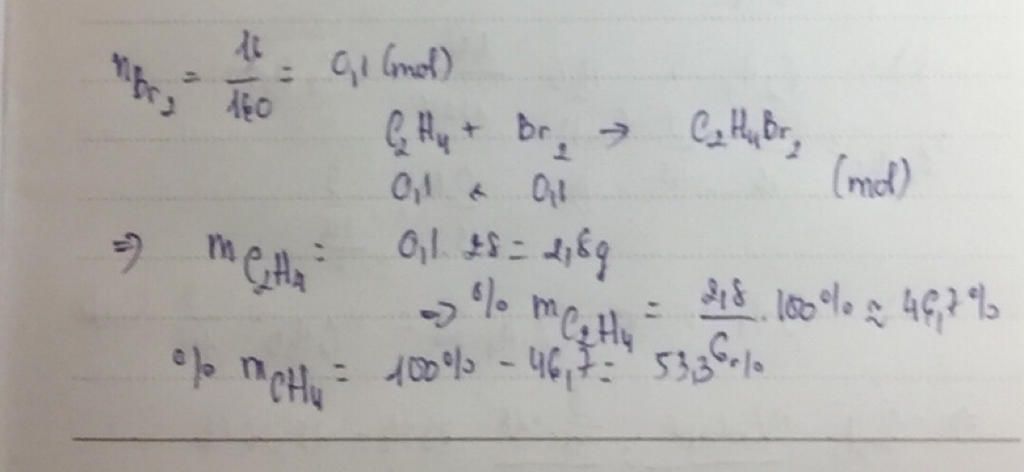 n_Br₂ = 16/160 = 0,1 (mol)
C₂H₄ + Br₂ → C₂H₄Br₂
0,1 ← 0,1 (mol)
⇒ m_C₂H₄ = 0,1. 28 = 2,8g
⇒ % m_C₂H₄ = 2,8/6 . 100% ≈ 46,7%
% m_CH₄ = 100% - 46,7 = 53,3%